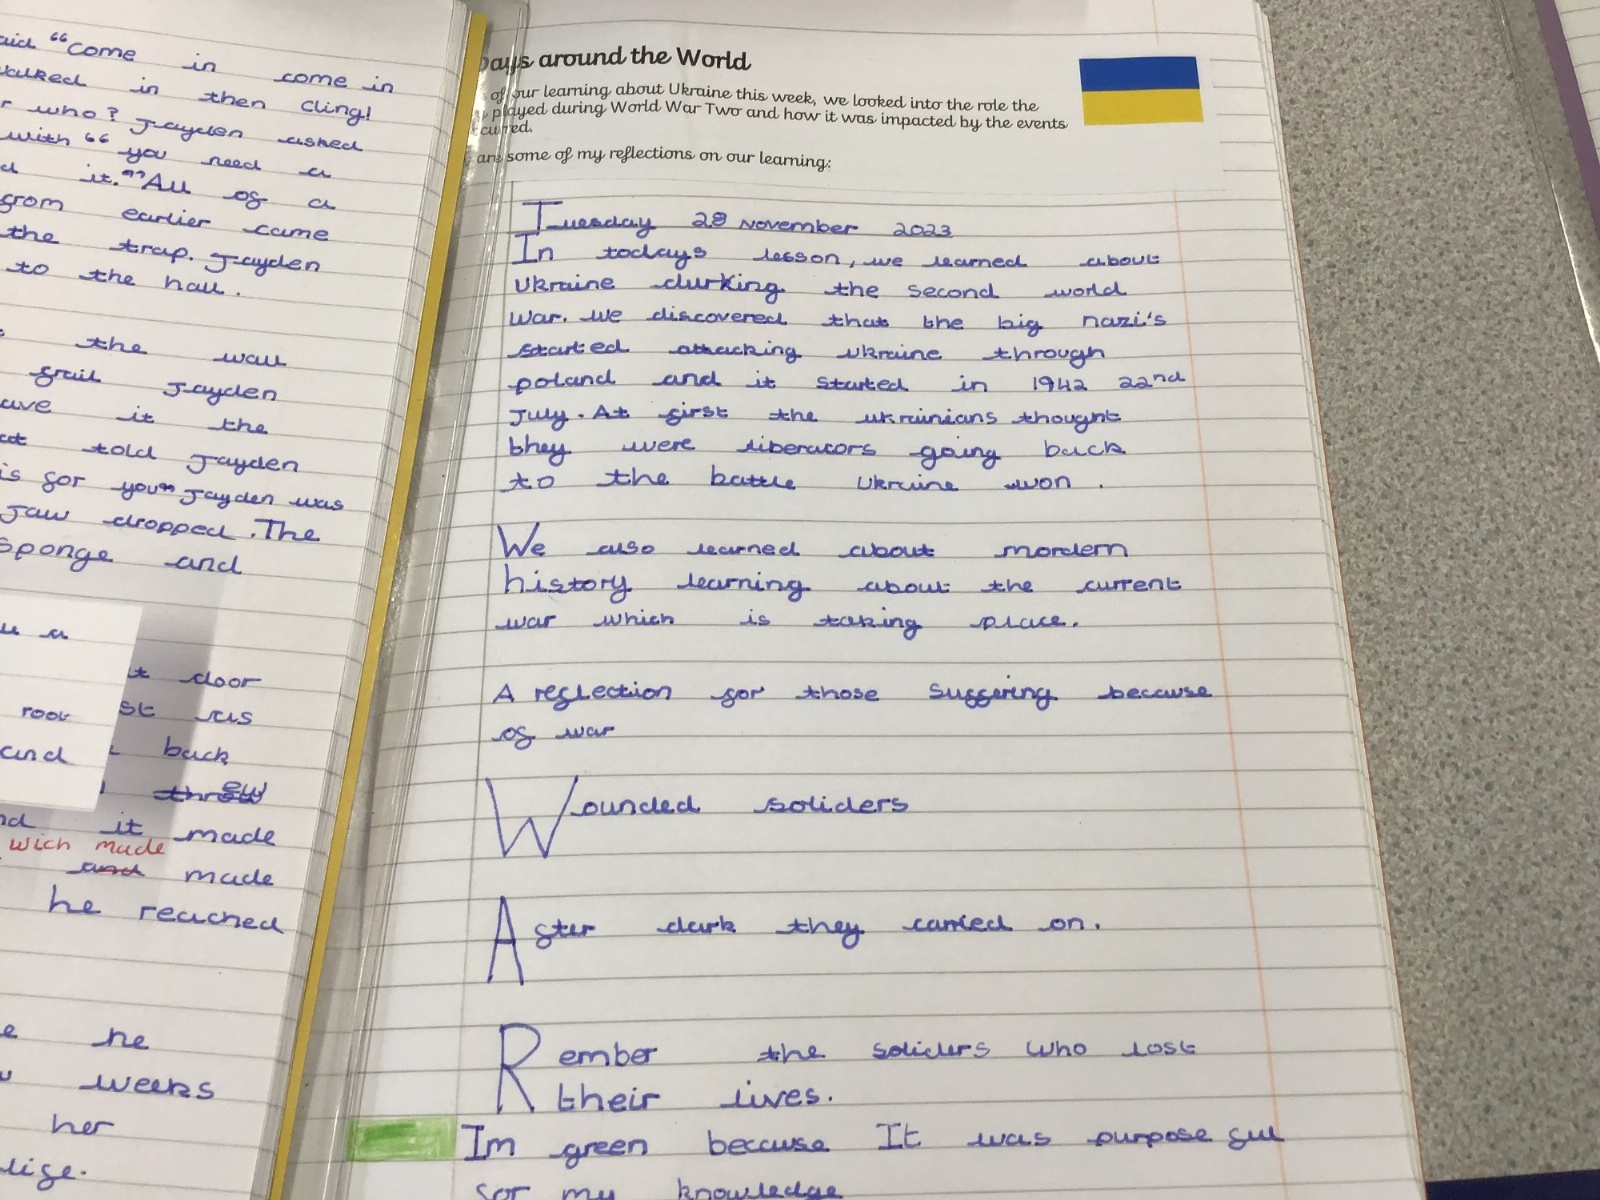 said “Come in come in
walked in then cling!
who? Jayden asked
with “ you need a
it.” All of a
from earlier came
the trap. Jayden
to the hall.
the wall
grail Jayden
it the
told Jayden
is for you” Jayden was
Jaw dropped. The
sponge and
a
door
root st as
and back
threw ew
it made
wich made
and made
he reached
he
weeks
her
life.
Days around the World
of our learning about Ukraine this week, we looked into the role the
played during World War Two and how it was impacted by the events
occurred.
are some of my reflections on our learning:
Tuesday 28 November 2023
In todays lesson, we learned about
Ukraine durking the second world
war. we discovered that the big nazi's
started attacking Ukraine through
poland and it started in 1942 22nd
July. At first the ukrainians thought
they were liberators going back
to the battle Ukraine won.
We also learned about mordern
history learning about the current
war which is taking place.
A reflection for those suffering because
of war
Wounded soliders
After dark they carried on.
Rember the soliders who lost
their lives.
Im green because It was purpose ful
for my knowledge